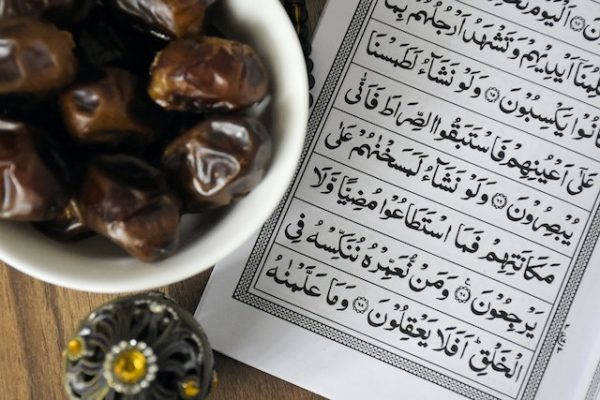 اَلْيَوْمَ
اَيْدِيْهِمْ وَتَشْهَدُ اَرْجُلُهُمْ بِمَا
كَانُوْا يَكْسِبُوْنَ ۝۶۵ وَلَوْ نَشَآءُ لَطَمَسْنَا
عَلٰۤى اَعْيُنِهِمْ فَاسْتَبَقُوا الصِّرَاطَ فَاَنّٰى
يُبْصِرُوْنَ ۝۶۶ وَلَوْ نَشَآءُ لَمَسَخْنٰهُمْ عَلٰى
مَكَانَتِهِمْ فَمَا اسْتَطَاعُوْا مُضِيًّا وَّلَا
يَرْجِعُوْنَ ۝۶۷ وَمَنْ نُّعَمِّرْهُ نُنَكِّسْهُ فِى
الْخَلْقِ ؕ اَفَلَا يَعْقِلُوْنَ ۝۶۸ وَمَا عَلَّمْنٰهُ